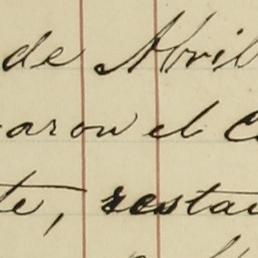 de Abril
aron el C
te, resta